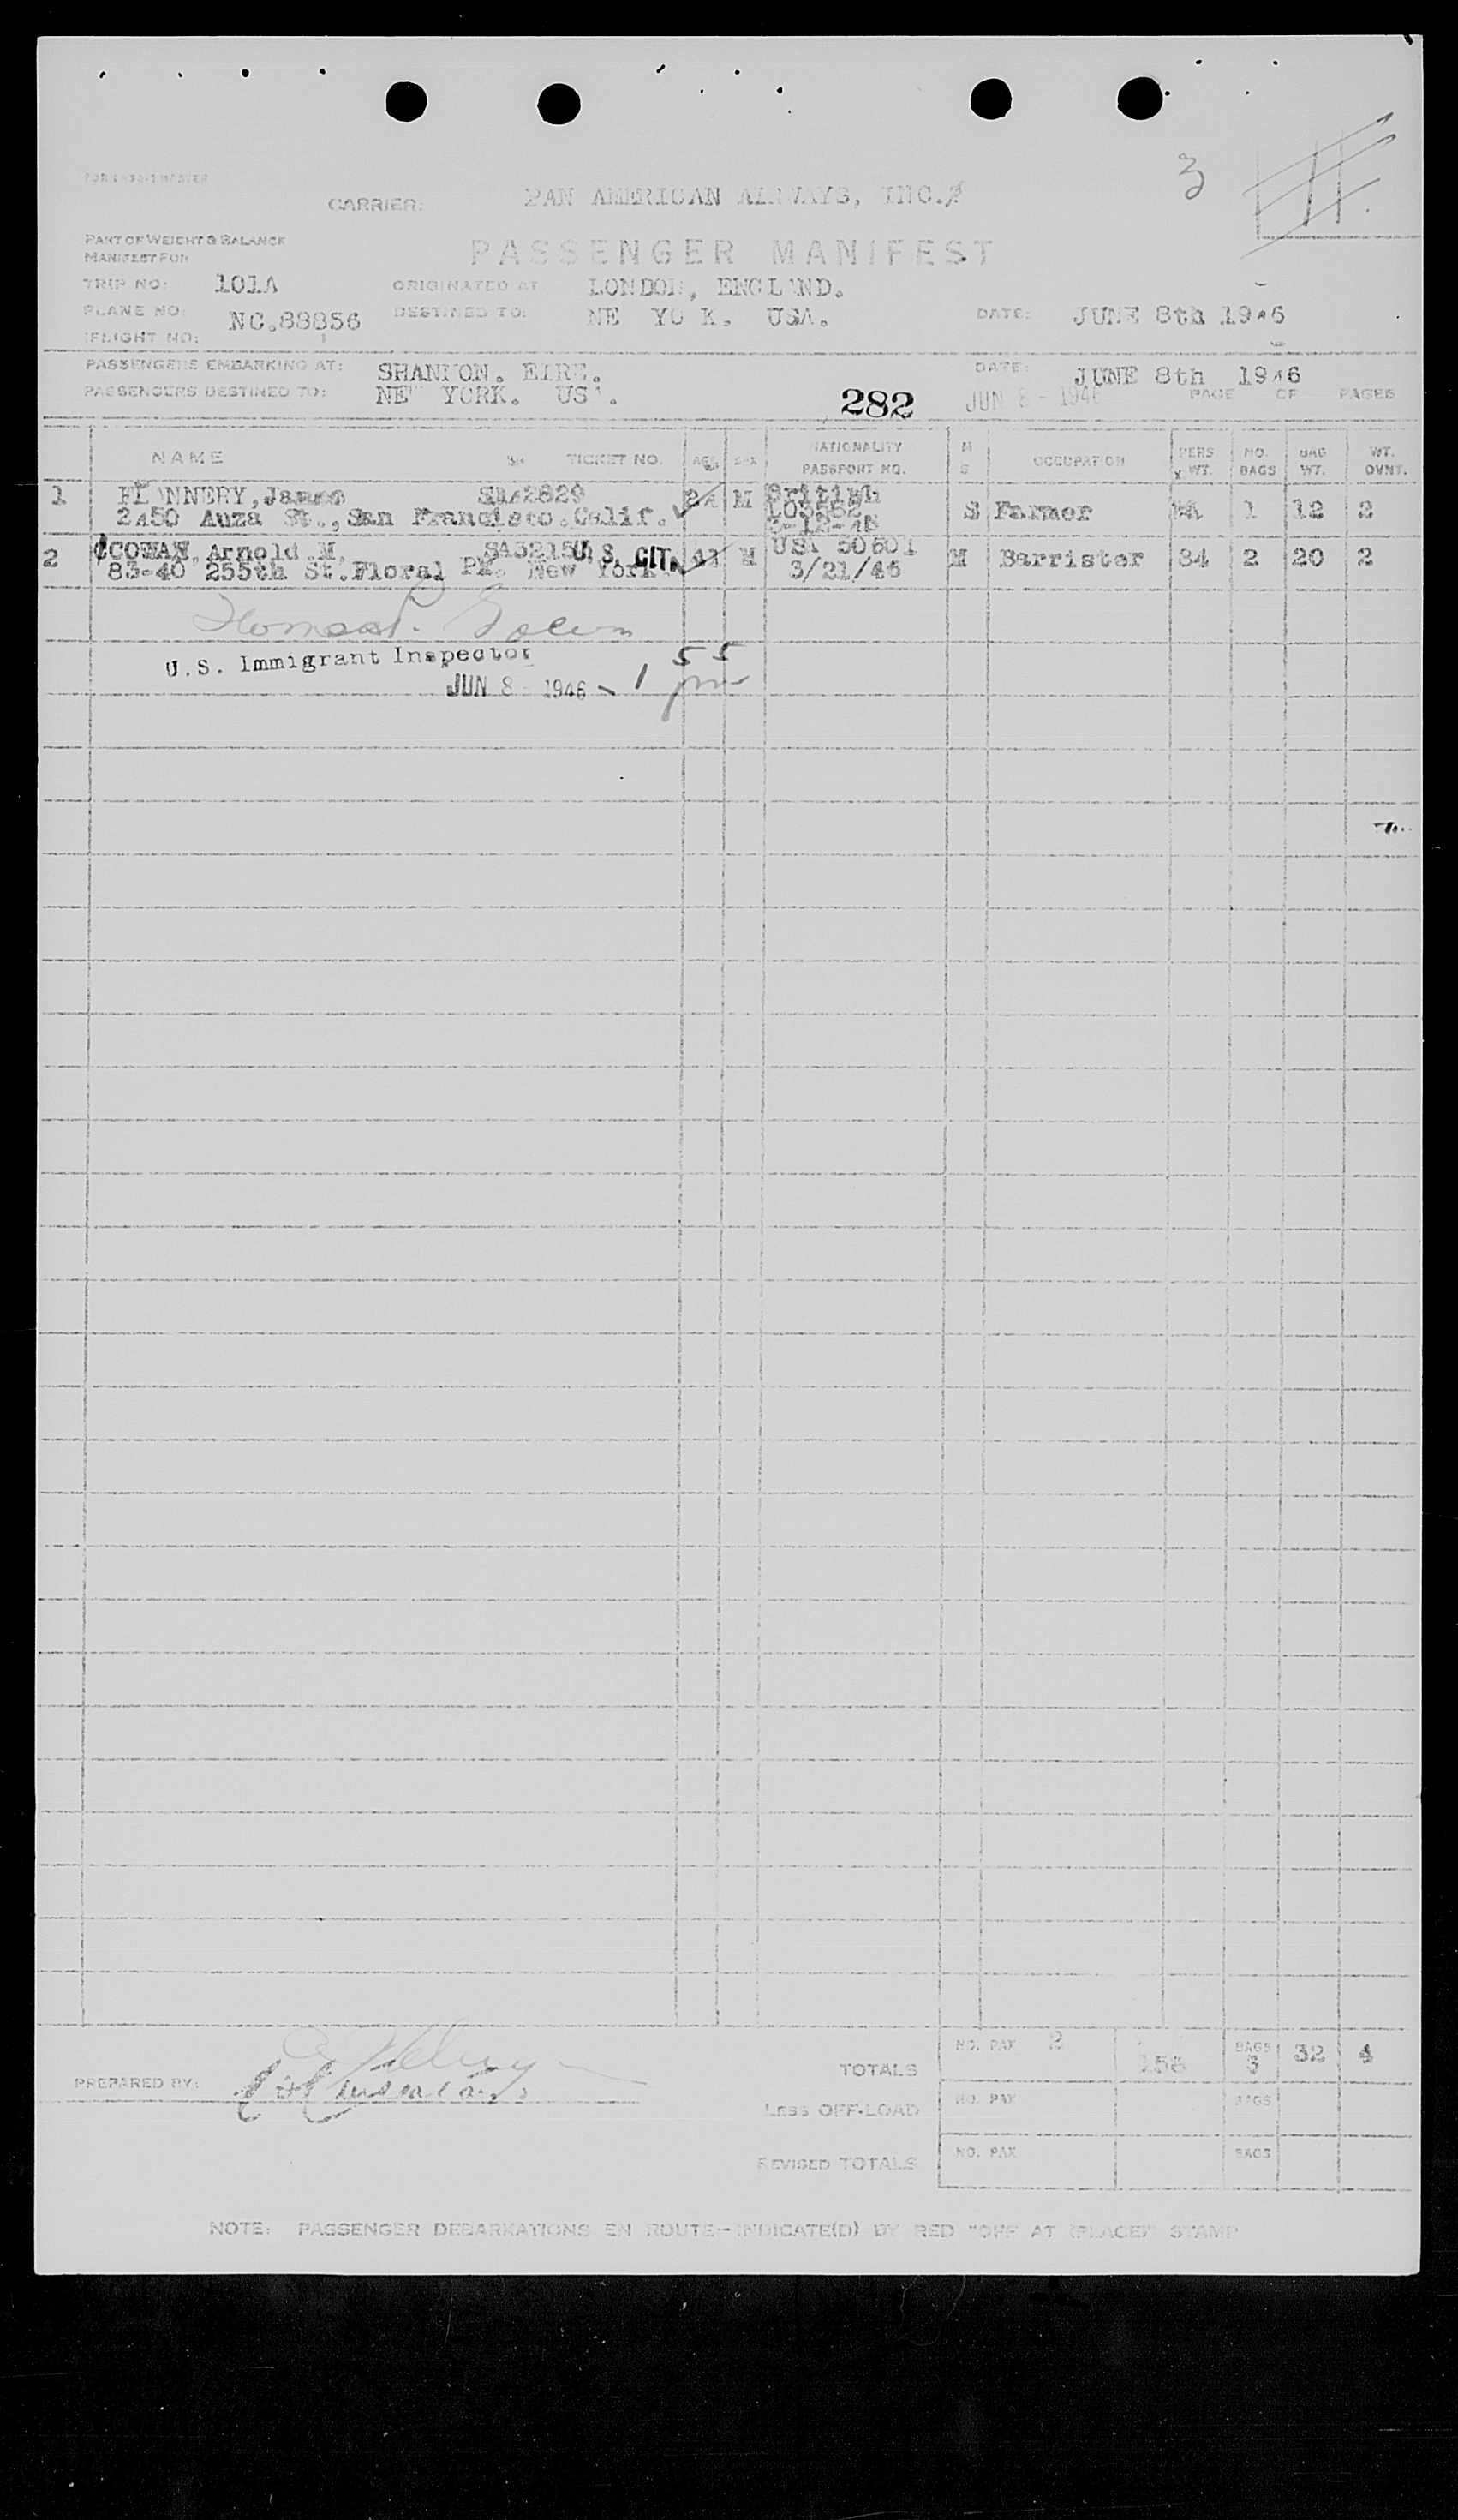 3
CARRIER: PAN AMERICAN AIRWAYS, INC.
PART OF WEIGHT & BALANCE
MANIFEST FOR
PASSENGER MANIFEST
TRIP NO: 101A ORIGINATED AT LONDON, ENGL ND.
PLANE NO: NC.88856 DESTINED TO: NE YO K. USA. DATE: JUNE 8th 1946
FLIGHT NO:
PASSENGERS EMBARKING AT: SHANNON. EIRE. DATE: JUNE 8th 1946
PASSENGERS DESTINED TO: NEW YORK. US . 282 JUN 8 - 1946 PAGE OF PAGES
NAME TICKET NO. AGE SEX NATIONALITY PASSPORT NO. M S OCCUPATION PERS WT. NO. BAGS BAG WT. WT. OVNT.
1 FL NNERY, James M British S Farmer 1 12 2
2450 Anza St., San Francisco. Calif.
2 COWAN, Arnold M. U.S. CIT. M USA M Barrister 84 2 20 2
83-40 255th St. Floral Pk. New York 3/21/46
U.S. Immigrant Inspector
JUN 8 - 1946 - 1 55 pm
TOTALS NO. PAX 2 BAGS 3 32 4
PREPARED BY:
LESS OFF-LOAD NO. PAX BAGS
REVISED TOTALS NO. PAX BAGS
NOTE: PASSENGER DEBARKATIONS EN ROUTE - INDICATE(D) BY RED "OFF AT (PLACE)" STAMP